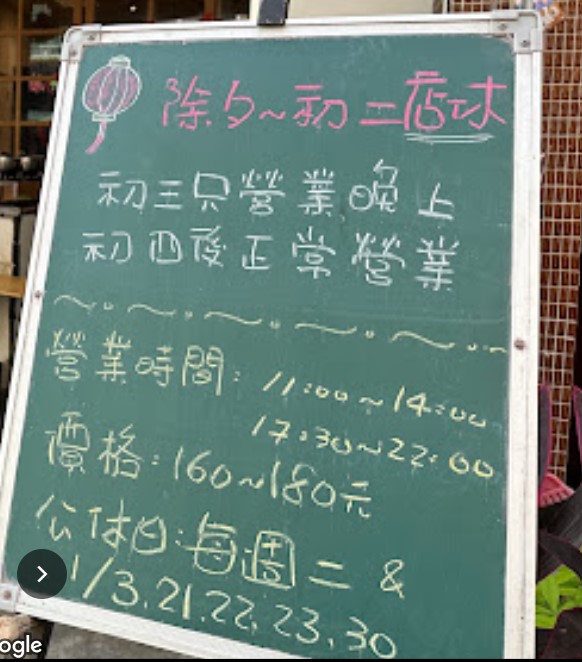 除夕~初二店休
初三只營業晚上
初四後正常營業
營業時間: 11:00~14:00
17:30~22:00
價格:160~180元
公休日:每週二 &
1/3.21.22.23.30
ogle